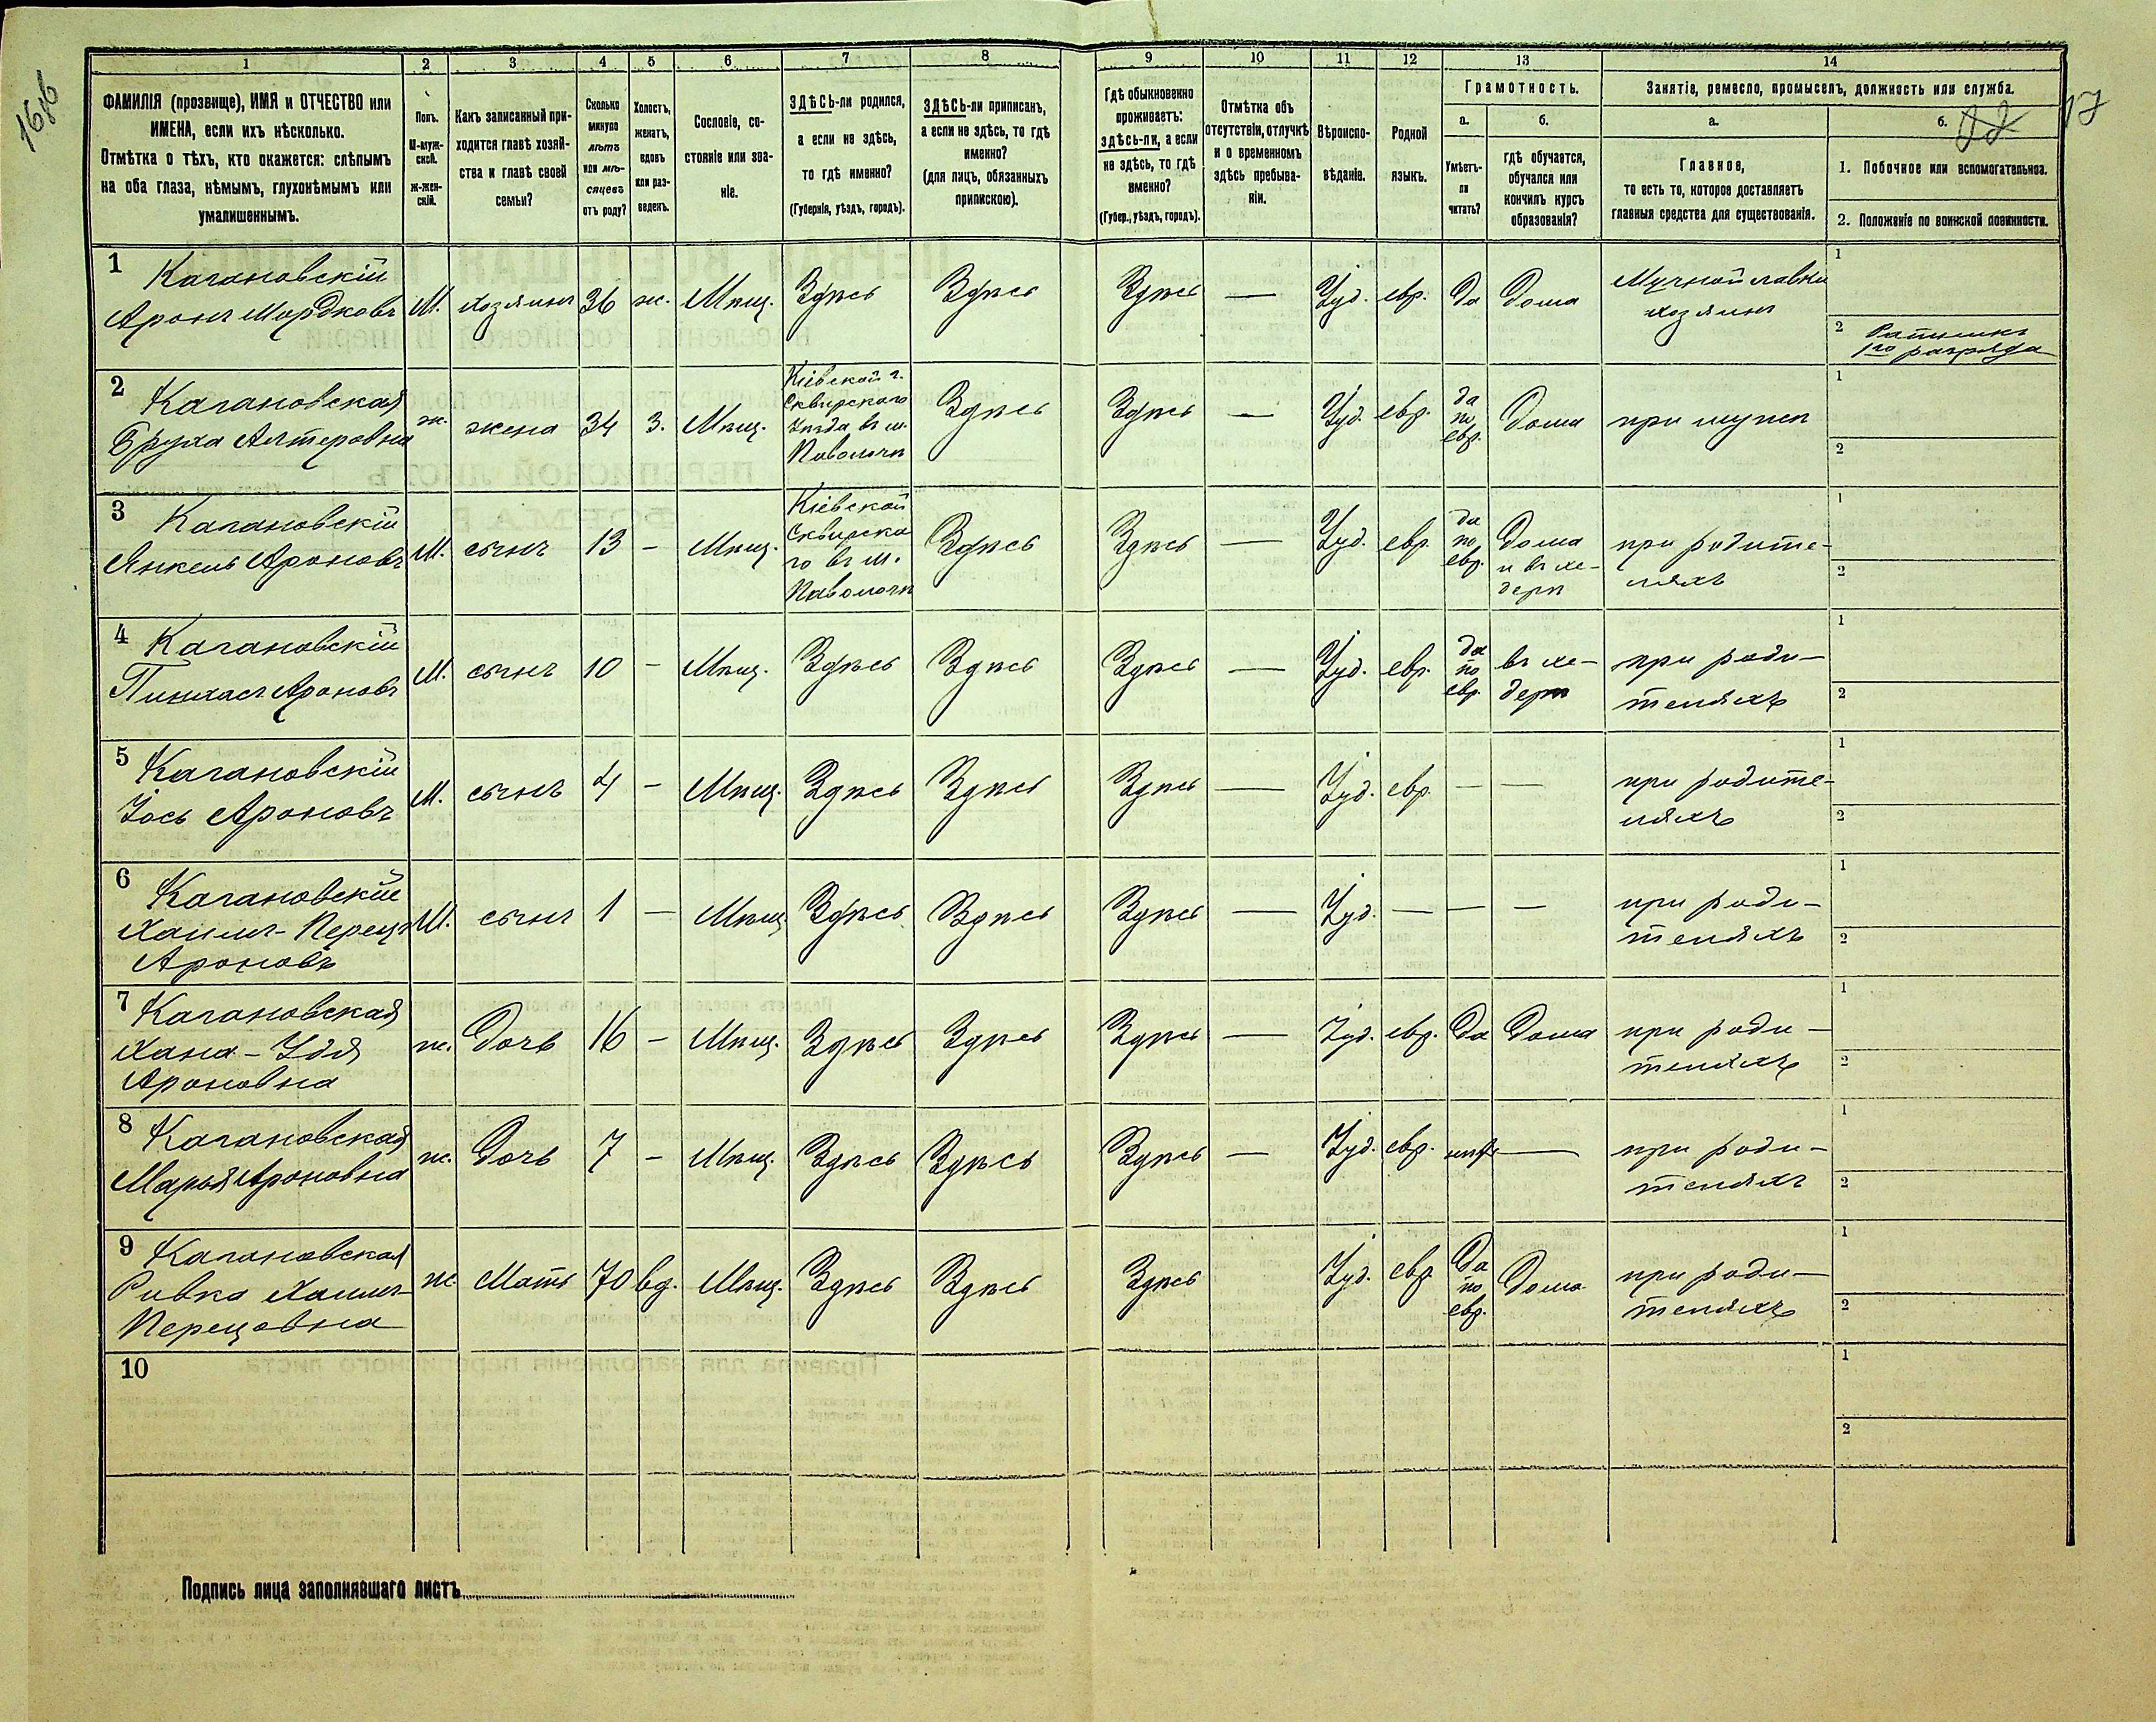 16об
17
1 2 3 4 5 6 7 8 9 10 11 12 13 14
ФАМИЛІЯ (прозвище), ИМЯ и ОТЧЕСТВО или
ИМЕНА, если ихъ нѣсколько.
Отмѣтка о тѣхъ, кто окажется: слѣпымъ
на оба глаза, нѣмымъ, глухонѣмымъ или
умалишеннымъ.
Полъ.
М-муж-
ской.
ж-жен-
скій.
Какъ записанный при-
ходится главѣ хозяй-
ства и главѣ своей
семьи?
Сколько
минуло
лѣтъ
или мѣ-
сяцевъ
отъ роду?
Холостъ,
женатъ,
вдовъ
или раз-
веденъ.
Сословіе, со-
стояніе или зва-
ніе.
ЗДѢСЬ-ли родился,
а если не здѣсь,
то гдѣ именно?
(Губернія, уѣздъ, городъ).
ЗДѢСЬ-ли приписанъ,
а если не здѣсь, то гдѣ
именно?
(для лицъ, обязанныхъ
припискою).
Гдѣ обыкновенно
проживаетъ:
здѣсь-ли, а если
не здѣсь, то гдѣ
именно?
(Губер., уѣздъ, городъ).
Отмѣтка объ
отсутствіи, отлучкѣ
и о временномъ
здѣсь пребыва-
ніи.
Вѣроиспо-
вѣданіе.
Родной
языкъ.
Грамотность.
а.
Умѣетъ-
ли
читать?
б.
гдѣ обучается,
обучался или
кончилъ курсъ
образованія?
Занятіе, ремесло, промыселъ, должность или служба.
а.
Главное,
то есть то, которое доставляетъ
главныя средства для существованія.
б.
1. Побочное или вспомогательное.
2. Положеніе по воинской повинности.
1 Кагановскій
Аронъ Мордковъ
М. хозяинъ 36 ж. Мѣщ. Здѣсь Здѣсь Здѣсь — Іуд. евр. да дома
Мучной лавки
хозяинъ
1
2 Ратникъ
1го разряда
2 Кагановская
Бруха Алтеровна
ж. жена 34 з. Мѣщ.
Кіевской г.
Сквирскаго
уѣзда въ м.
Паволочи
Здѣсь Здѣсь — Іуд. евр.
да
по
евр.
дома при мужѣ
1
2
3 Кагановскій
Янкель Ароновъ
М. сынъ 13 — Мѣщ.
Кіевской
Сквирска
го въ м.
Паволочи
Здѣсь Здѣсь — Іуд. евр.
да
по
евр.
дома
и въ хе-
дерѣ
при родите-
ляхъ
1
2
4 Кагановскій
Пинхасъ Ароновъ
М. сынъ 10 — Мѣщ. Здѣсь Здѣсь Здѣсь — Іуд. евр.
да
по
евр.
въ хе-
дерѣ
при роди-
теляхъ
1
2
5 Кагановскій
Іось Ароновъ
М. сынъ 4 — Мѣщ. Здѣсь Здѣсь Здѣсь — Іуд. евр. — —
при родите-
ляхъ
1
2
6 Кагановскій
Хаимъ-Перецъ
Ароновъ
М. сынъ 1 — Мѣщ. Здѣсь Здѣсь Здѣсь — Іуд. — — —
при роди-
теляхъ
1
2
7 Кагановская
Хана-Удя
Ароновна
ж. дочь 16 — Мѣщ. Здѣсь Здѣсь Здѣсь — Іуд. евр. да дома
при роди-
теляхъ
1
2
8 Кагановская
Марья Ароновна
ж. дочь 7 — Мѣщ. Здѣсь Здѣсь Здѣсь — Іуд. евр. нѣтъ —
при роди-
теляхъ
1
2
9 Кагановская
Ривка Хаимъ-
Перецовна
ж. Мать 70 вд. Мѣщ. Здѣсь Здѣсь Здѣсь Іуд. евр.
да
по
евр.
дома
при роди-
теляхъ
1
2
10
1
2
Подпись лица заполнявшаго листъ